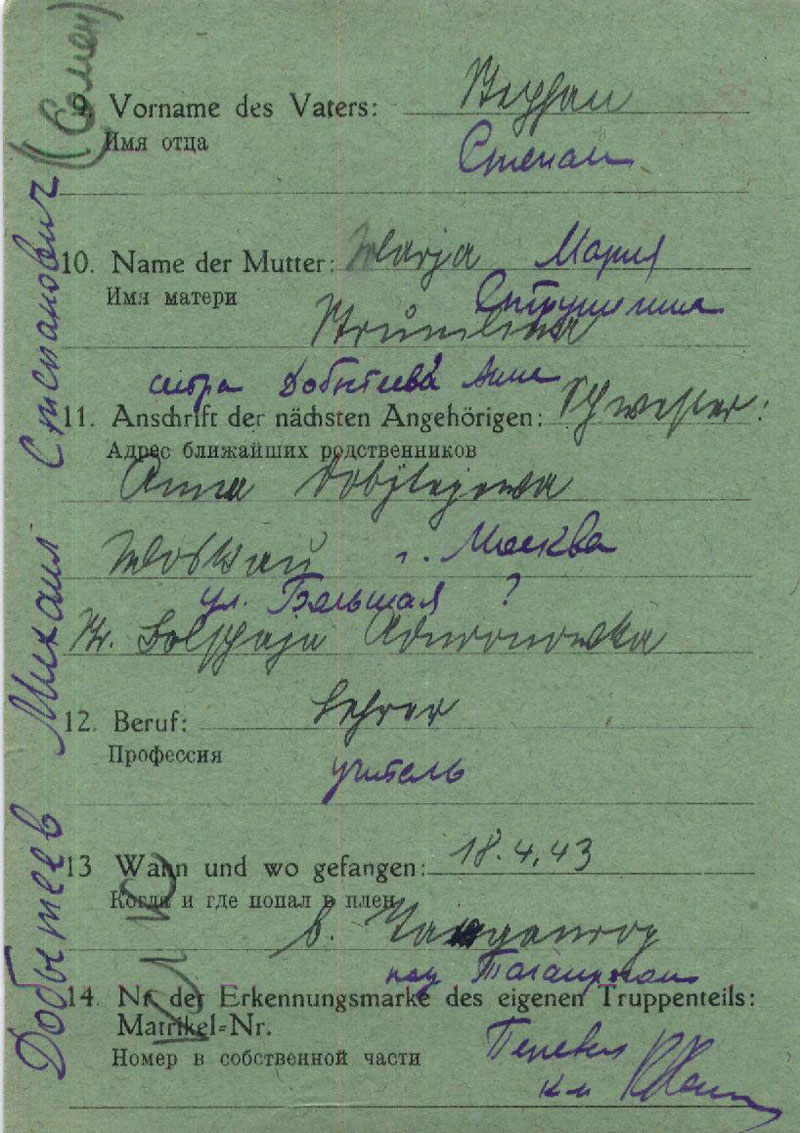 Добытеев Михаил Степанович
9. Vorname des Vaters: Stephan
Имя отца Степан
10. Name der Mutter: Marja Мария
Имя матери
сестра Добытеева Анна
11. Anschrift der nächsten Angehörigen: Schwester:
Адрес ближайших родственников
Anna Dobytejewa
Moskau г. Москва
ул. Большая ?
Str. Bolschaja
12. Beruf: Lehrer
Профессия учитель
13 Wann und wo gefangen: 18.4.43
Когда и где попал в плен
b. Taganrog
под Таганрогом
14. Nr. der Erkennungsmarke des eigenen Truppenteils:
Matrikel-Nr.
Номер в собственной части
Перевел